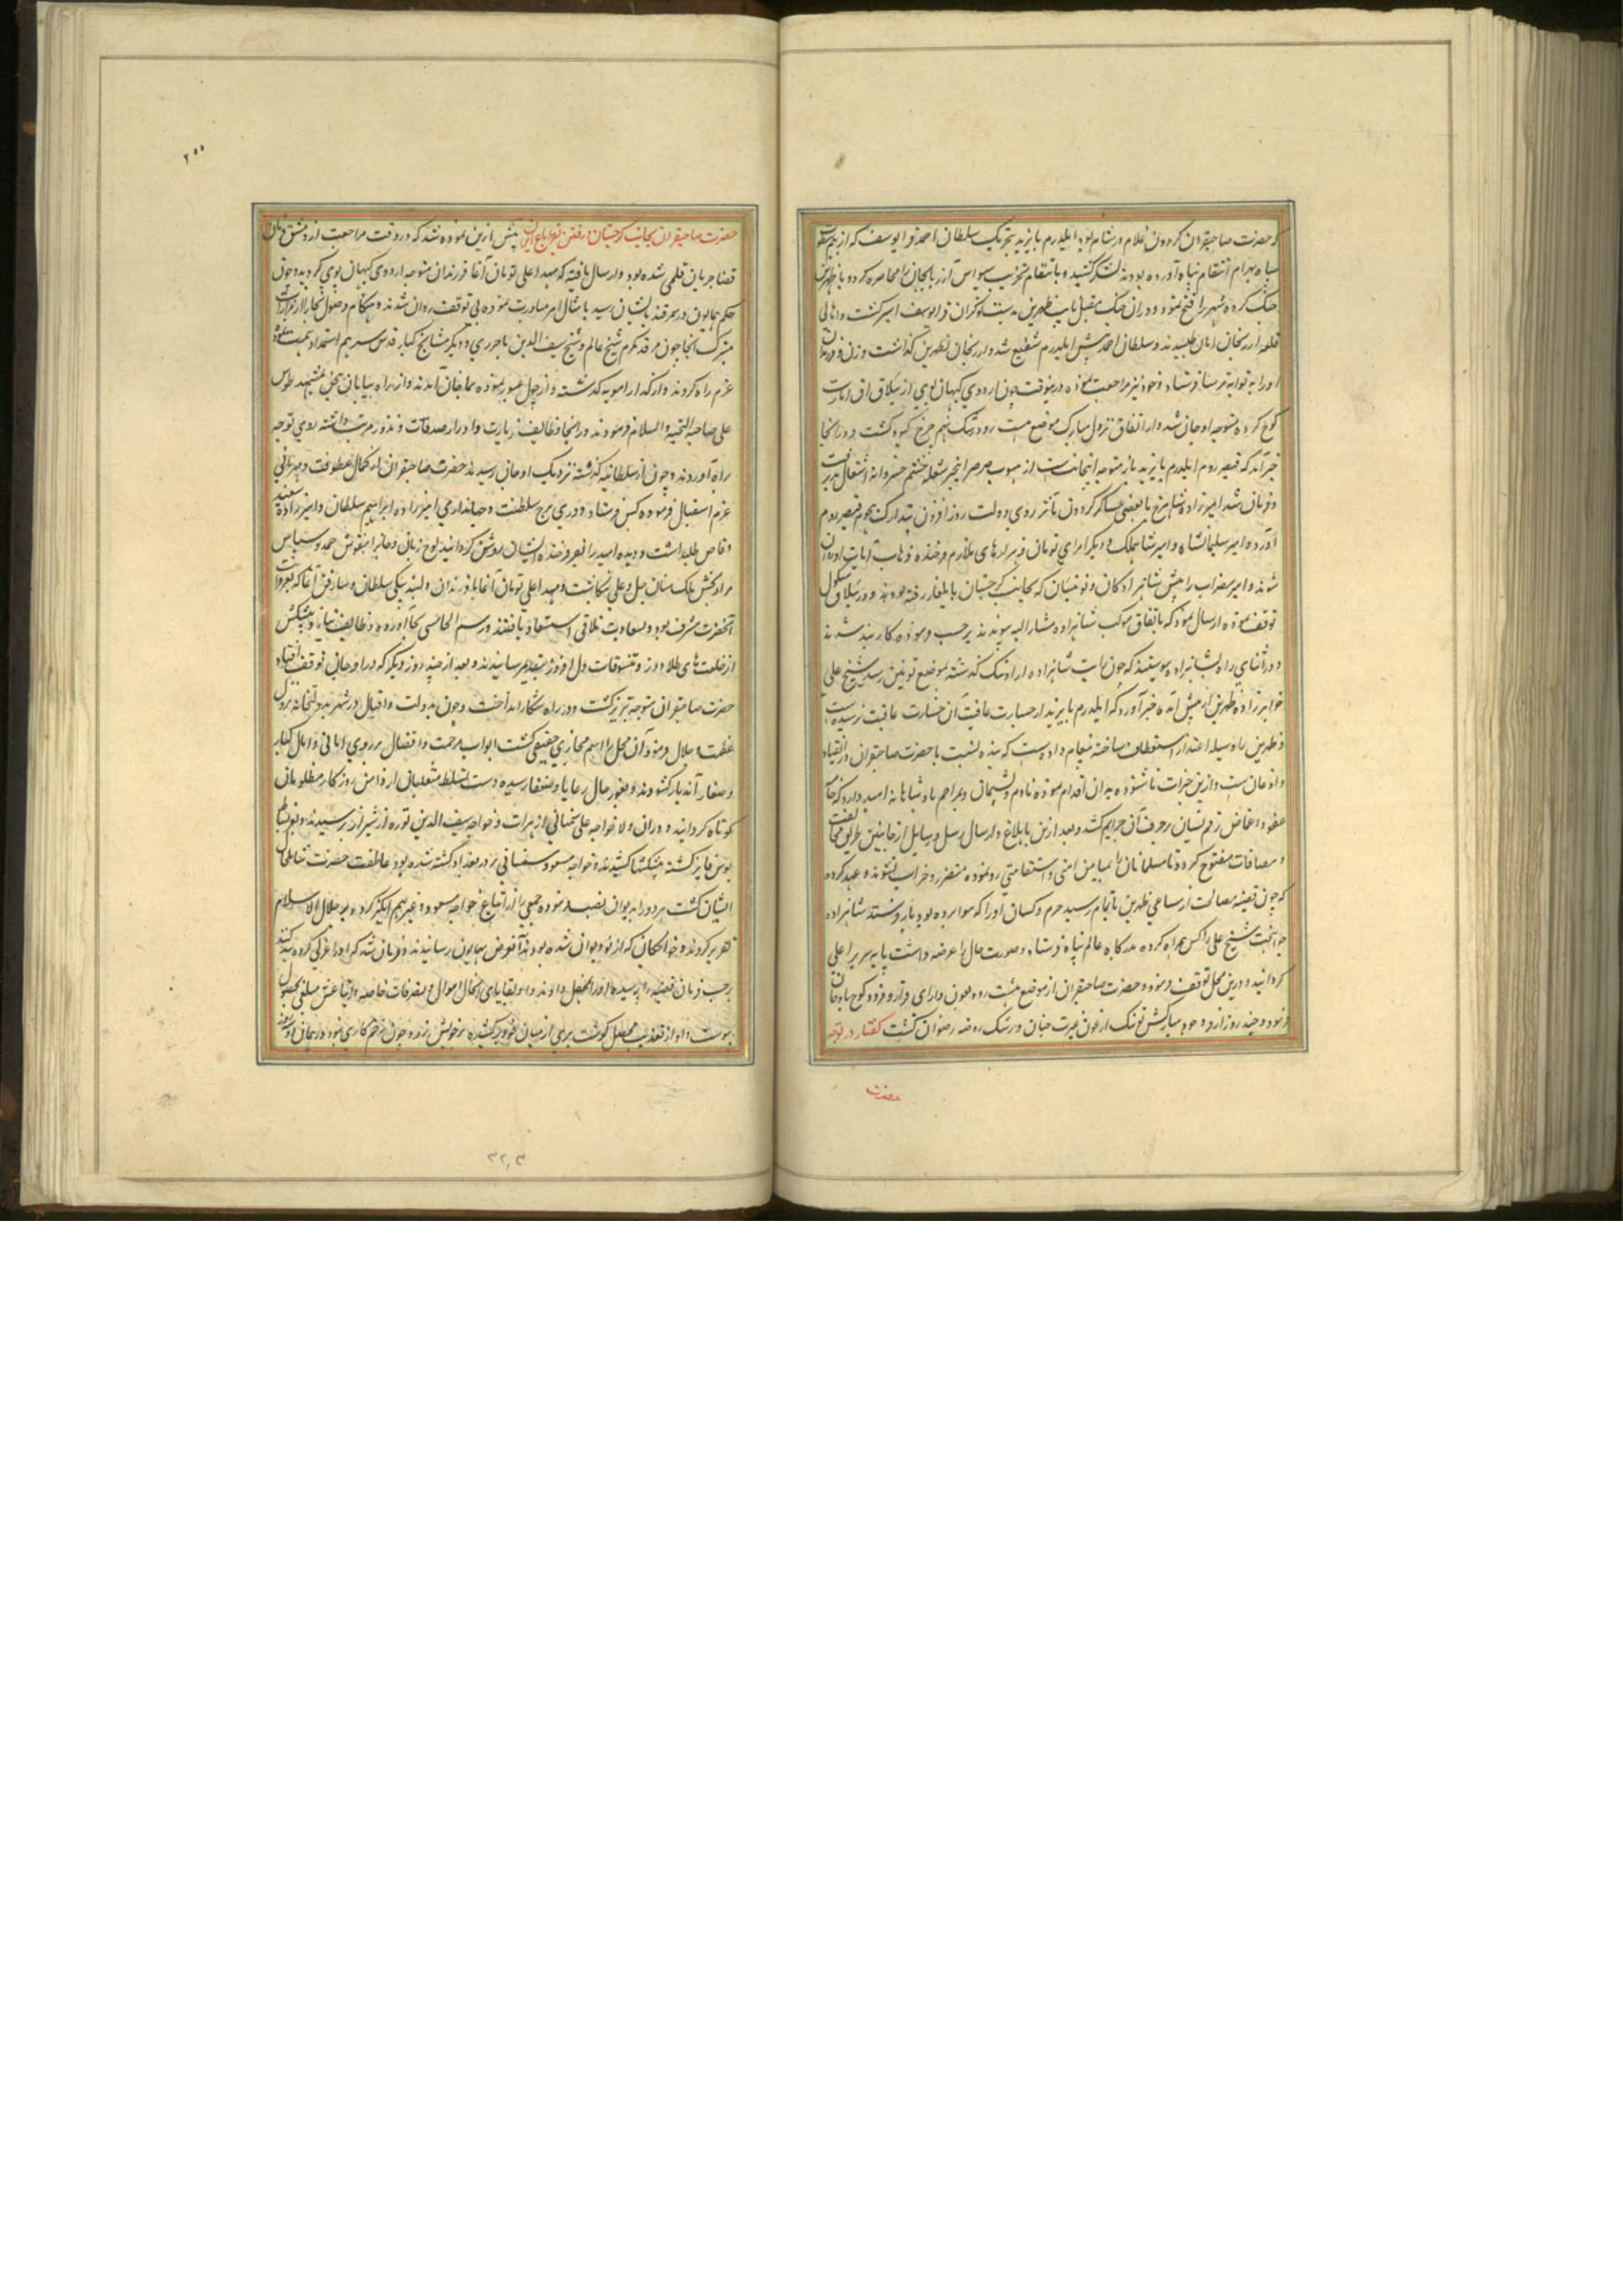 که حضرت صاحبقران گردون غلام در شام بود ایلدرم بایزید بتحریک سلطان احمد و قرا یوسف که از بیم
سپاه بهرام انتقام پناه آورده بودند لشکر کشید و بانتقام تخریب سیواس آذربایجان را محاصره کرد و با طهرتن
جنک کرده شهر را فتح نمود و در آن جنک مقبل نایب طهرتن بدست نوکران قرا یوسف اسیر کشت و اهالی
قلعه ارزنجان امان طلبیدند و سلطان احمد پیش ایلدرم شفیع شد و ارزنجان بطهرتن کذاشت و زن و فرزندان
او را به فرستاد و خود نیز مراجعت نموده درینوقت چون اردوی کیهان پوی از ییلاق
کوچ کرده متوجه اوجان شد و از اتفاق نزول مبارک موضع هشت رود رشک نهم چرخ کبود کشت و در انجا
خبر آمد که قیصر روم ایلدرم بایزید باز متوجه اینجانبست از هبوب صرصر این خبر شعله خشم خسروانه اشتعال پذیرفت
و فرمان شد امیرزاده شاهرخ با بعضی عساکر کردون مآثر روی دولت روز افزون بتدارک هجوم قیصر روم
آورد و امیر سلیمانشاه و امیر شاهملک و دیگر امرای تومان و هزارهای ملازم فرخنده ذهاب و ایاب او روان
شدند و امیر مضراب را پیش شاهزادکان و نوئینان که بجانب کرجستان بایلغار رفته بودند و در ییلاق
توقف نموده ارسال نمود که باتفاق موکب شاهزاده مشارالیه پیوندند برحسب فرموده کاربند شدند
و در اثنای راه بشاهزاده پیوستند که چون رایت شاهزاده از اراونیک کذشته بموضع تونین رسید شیخ علی
خواهرزاده طهرتن از پیش آمده خبر آورد که ایلدرم بایزید از جسارت عاقبت آن خسارت عاقبت ترسیده است
و طهرتن را وسیله اعتذار و استعطاف ساخته پیغام داده است که بنده نسبت با حضرت صاحبقران در انقیاد
و اذعان است و ازین جرات ناشنوده بدان اقدام نموده نادم و پشیمان و بمراحم پادشاهانه امیدوارد که خامه
عفو و اغماض رقم نسیان بر حرف آن جرایم کشد و بعد ازین بابلاغ و ارسال رسل و رسایل از جانبین طریق مخالفت
و مصافات مفتوح کردد تا مسلمانان را بمیامن امنی و استقامتی رو نموده متضرر و خراب نشوند و عهد کرده
که چون قضیه مصالحت از مساعی طهرتن باتمام رسید حرم و کسان او را که به روسا برده بود باز فرستد شاهزاده
جوانبخت شیخ علی را کس همراه کرده بدرکاه عالم پناه فرستاد و صورت حال را عرضه داشت پایه سریر اعلی
کردانید و درین محل توقف فرمود و حضرت صاحبقران از موضع هشت رود بعون دارای فرازنده فرود کوچ باوجان
فرمود و چند روز از وجود مبارکش تونک ارغون غیرت جنان و رشک روضه رضوان کشت گفتار در توجه
حضرت
۲۵۵
حضرت صاحبقران بجانب کرجستان پیش ازین نموده شد که در وقت مراجعت از دمشق فرمان
قضا جریان قلمی شده بود و ارسال یافته که مهد اعلی تومان آغا و فرزندان متوجه اردوی کیهان پوی کردند و چون
حکم همایون در سمرقند بایشان رسید بامتثال امر مبادرت نموده بی توقف روان شدند و هنکام وصول بخارا از مزارات
متبرک انجا چون مرقد مکرم شیخ عالم و شیخ سیف الدین باخرزی و دیکر مشایخ کبار قدس سرهم استمداد همت نموده
عزم راه کردند و از کذار امویه کذشته و از چول عبور نموده بماخان آمدند و از راه بیابان بمشهد طوس
علی صاحبها التحیة و السلام فرمودند و در انجا وظایف زیارت و ادرار صدقات و نذور مرتب داشته روی توجه
براه آوردند و چون از سلطانیه کذشته نزدیک اوجان رسیدند حضرت صاحبقران از کمال عطوفت و مهربانی
عزم استقبال فرموده کس فرستاد و دری برج سلطنت و جهانداری امیرزاده ابراهیم سلطان و امیرزاده سعد
وقاص طلب داشت و دیده امید را بفر فرخنده ایشان روشن کردانید لوح زبان و جان را بنقوش حمد و سپاس
مراد بخش بی منت جل و علی نکاشت و مهد اعلی تومان آغا با فرزندان و بیکی سلطان و آغا که بفر دولت
آنحضرت مشرف بود و بسعادت تلاقی استسعاد یافتند و رسم الجامیشی بجا آورده وظایف نثار و پیشکش
از خلعت های طلادوز و تنسوقات دل افروز بتقدیم رسانیدند و بعد از چند روز دیکر که در اوجان توقف افتاد
حضرت صاحبقران متوجه تبریز کشت و در راه شکار انداخت و چون بدولت و اقبال در شهر بدولتخانه نزول
عظمت و جلال فرمود آن محل را اسم مجازی حقیقی کشت ابواب مرحمت و افضال بر روی امانی و آمال کبار
و صغار آن دیار کشودند و بغور حال رعایا و ضعفا رسیده دست تسلط متغلبان از دامن روزکار مظلومان
کوتاه کردانید و در آن ولا خواجه علی سمنانی از هرات و خواجه سیف الدین تونی از سبزوار رسیدند و ببساط
بوس فایز کشته پیشکشها کشیدند و خواجه مسعود سمنانی در بغداد کشته شده بود عاطفت حضرت شامل حال
ایشان کشت هر دو را بدیوان نصب فرموده جمعی را از اتباع خواجه مسعود و غیرهم انکیز کرده بر جلال الاسلام
تقریر کردند و خواجکان که از نو دیوان شده بودند آنرا بعرض همایون رسانیدند و فرمان شد که او را کرده بند کنند
برحسب فرمان قضیه را پرسیده او را بمحصل دادند و او بقایای اعمال اموال و متصرفات خاصه و اتباع مبلغی بحصول
پیوست و او از تعذیب محصل کوشت بری از میان خود برکشیده بر خویش زد و چون زخم کاری نبود درمان او
۳۲۳